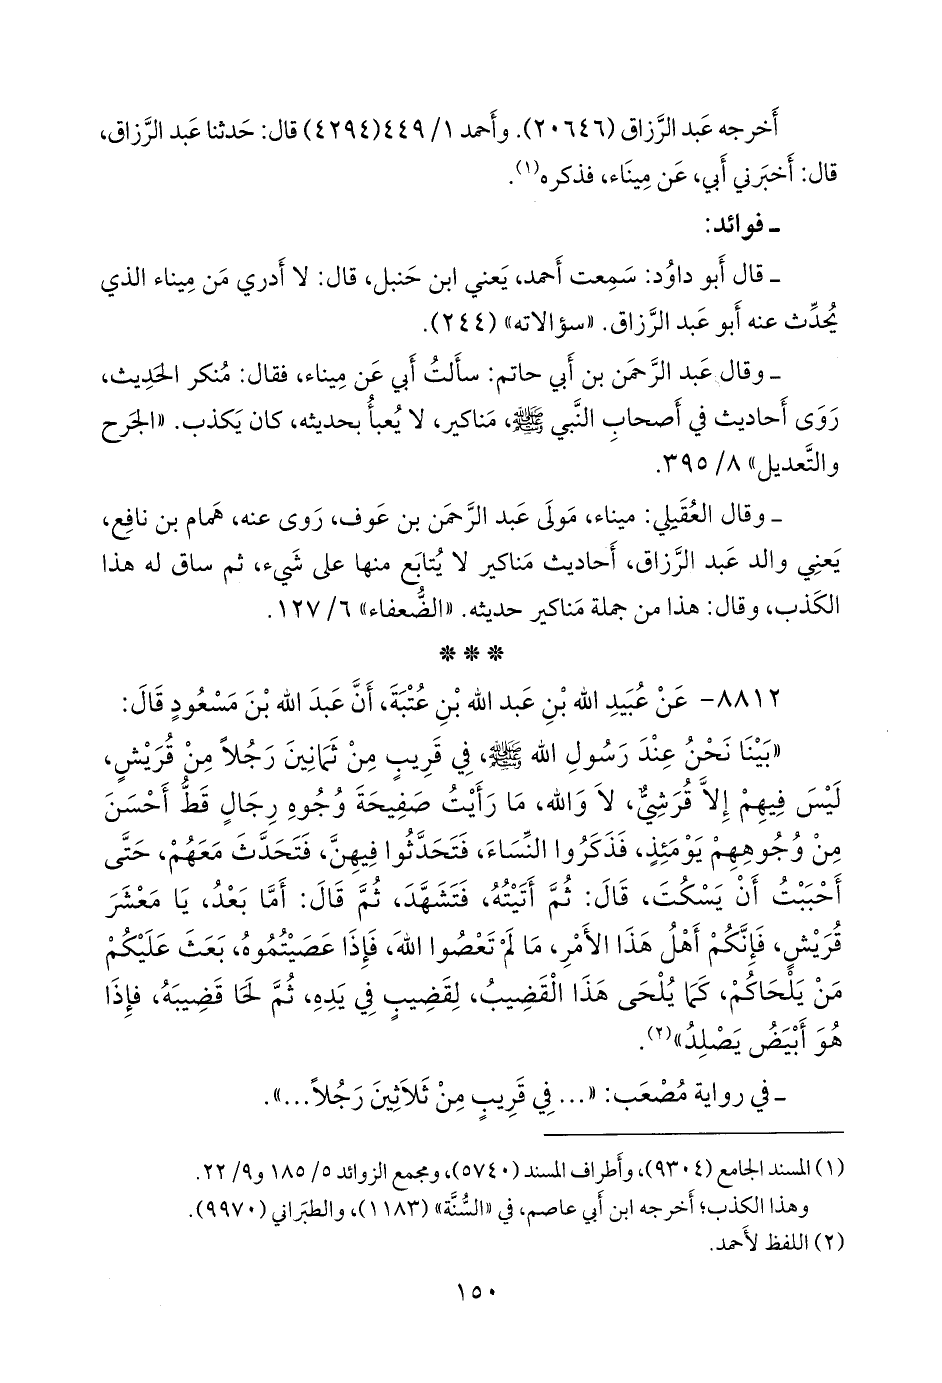 أَخرجه عَبد الرَّزاق (٢٠٦٤٦). وأَحمد ١/ ٤٤٩(٤٢٩٤) قال: حَدثنا عَبد الرَّزاق،
قال: أَخبَرني أَبي، عَن مِيناء، فذكره(١).
ـ فوائد:
ـ قال أَبو داوُد: سَمِعت أَحمد، يَعني ابن حَنبل، قال: لا أَدري مَن مِيناء الذي
يُحدِّث عنه أَبو عَبد الرَّزاق. «سؤالاته» (٢٤٤).
ـ وقال عَبد الرَّحمَن بن أَبي حاتم: سأَلتُ أَبي عَن مِيناء، فقال: مُنكر الحَدِيث،
رَوَى أَحاديث في أَصحابِ النَّبي ﷺ، مَناكير، لا يُعبأُ بحديثه، كان يَكذب. «الجَرح
والتَّعديل» ٨/ ٣٩٥.
ـ وقال العُقَيلي: ميناء، مَولَى عَبد الرَّحمَن بن عَوف، رَوى عنه، هَمام بن نافِع،
يَعنِي والد عَبد الرَّزاق، أَحاديث مَناكير لا يُتابَع منها على شَيء، ثم ساق له هذا
الكَذب، وقال: هذا من جملة مَناكير حديثه. «الضُّعفاء» ٦/ ١٢٧.
* * *
٨٨١٢- عَنْ عُبَيدِ الله بْنِ عَبد الله بْنِ عُتْبَةَ، أَنَّ عَبدَ الله بْنَ مَسْعُودٍ قَالَ:
«بَيْنَا نَحْنُ عِنْدَ رَسُولِ الله ﷺ، فِي قَرِيبٍ مِنْ ثَمَانِينَ رَجُلاً مِنْ قُرَيْشٍ،
لَيْسَ فِيهِمْ إِلاَّ قُرَشِيٌّ، لاَ وَالله، مَا رَأَيْتُ صَفِيحَةَ وُجُوهِ رِجَالٍ قَطُّ أَحْسَنَ
مِنْ وُجُوهِهِمْ يَوْمَئِذٍ، فَذَكَرُوا النِّسَاءَ، فَتَحَدَّثُوا فِيهِنَّ، فَتَحَدَّثَ مَعَهُمْ، حَتَّى
أَحْبَبْتُ أَنْ يَسْكُتَ، قَالَ: ثُمَّ أَتَيْتُهُ، فَتَشَهَّدَ، ثُمَّ قَالَ: أَمَّا بَعْدُ، يَا مَعْشَرَ
قُرَيْشٍ، فَإِنَّكُمْ أَهْلُ هَذَا الأَمْرِ، مَا لَمْ تَعْصُوا اللهَ، فَإِذَا عَصَيْتُمُوهُ، بَعَثَ عَلَيْكُمْ
مَنْ يَلْحَاكُمْ، كَمَا يُلْحَى هَذَا الْقَضِيبُ، لِقَضِيبٍ فِي يَدِهِ، ثُمَّ لَحَا قَضِيبَهُ، فَإِذَا
هُوَ أَبْيَضُ يَصْلِدُ»(٢).
ـ في رواية مُصْعَب: «... فِي قَرِيبٍ مِنْ ثَلاَثِينَ رَجُلاً...».
(١) المسند الجامع (٩٣٠٤)، وأَطراف المسند (٥٧٤٠)، ومجمع الزوائد ٥/ ١٨٥ و٩/ ٢٢.
وهذا الكذب؛ أخرجه ابن أبي عاصم، في «السُّنَّة» (١١٨٣)، والطبَراني (٩٩٧٠).
(٢) اللفظ لأَحمد.
١٥٠